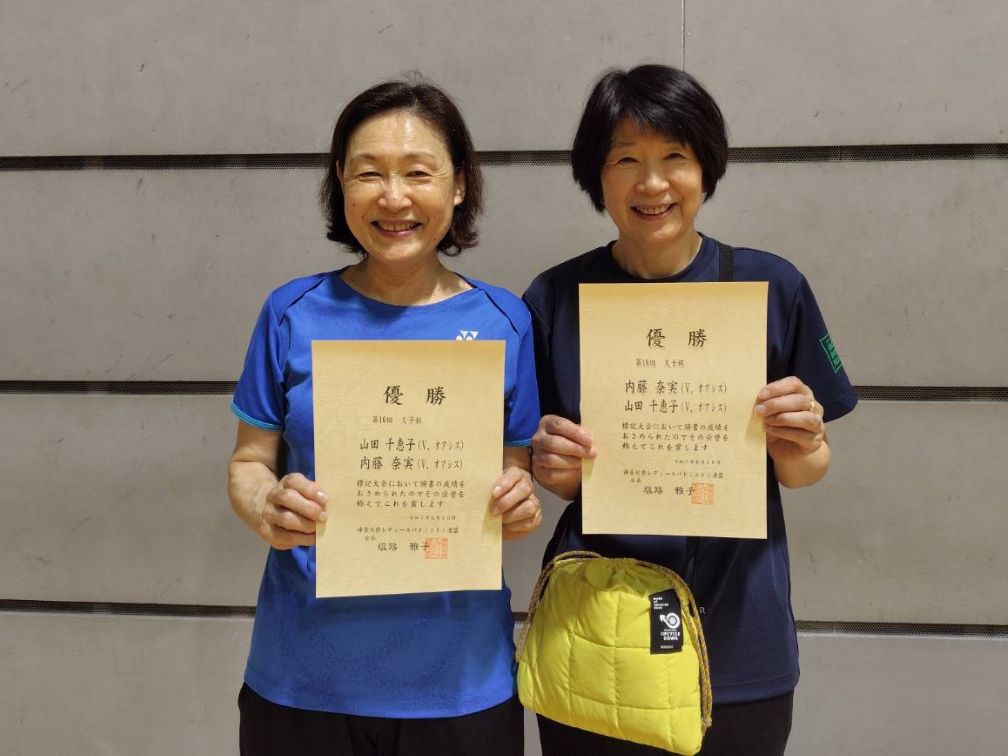 優勝
第16回 久子杯
山田 千恵子(V.オアシス)
内藤 奈実(V.オアシス)
標記大会において頭書の成績を
おさめられたのでその栄誉を
称えてこれを賞します
神奈川県レディースバドミントン連盟
会長
塩路 雅子
優勝
第16回 久子杯
内藤 奈実(V.オアシス)
山田 千恵子(V.オアシス)
標記大会において頭書の成績を
おさめられたのでその栄誉を
称えてこれを賞します
神奈川県レディースバドミントン連盟
会長
塩路 雅子
UPCYCLE
DOWN
R